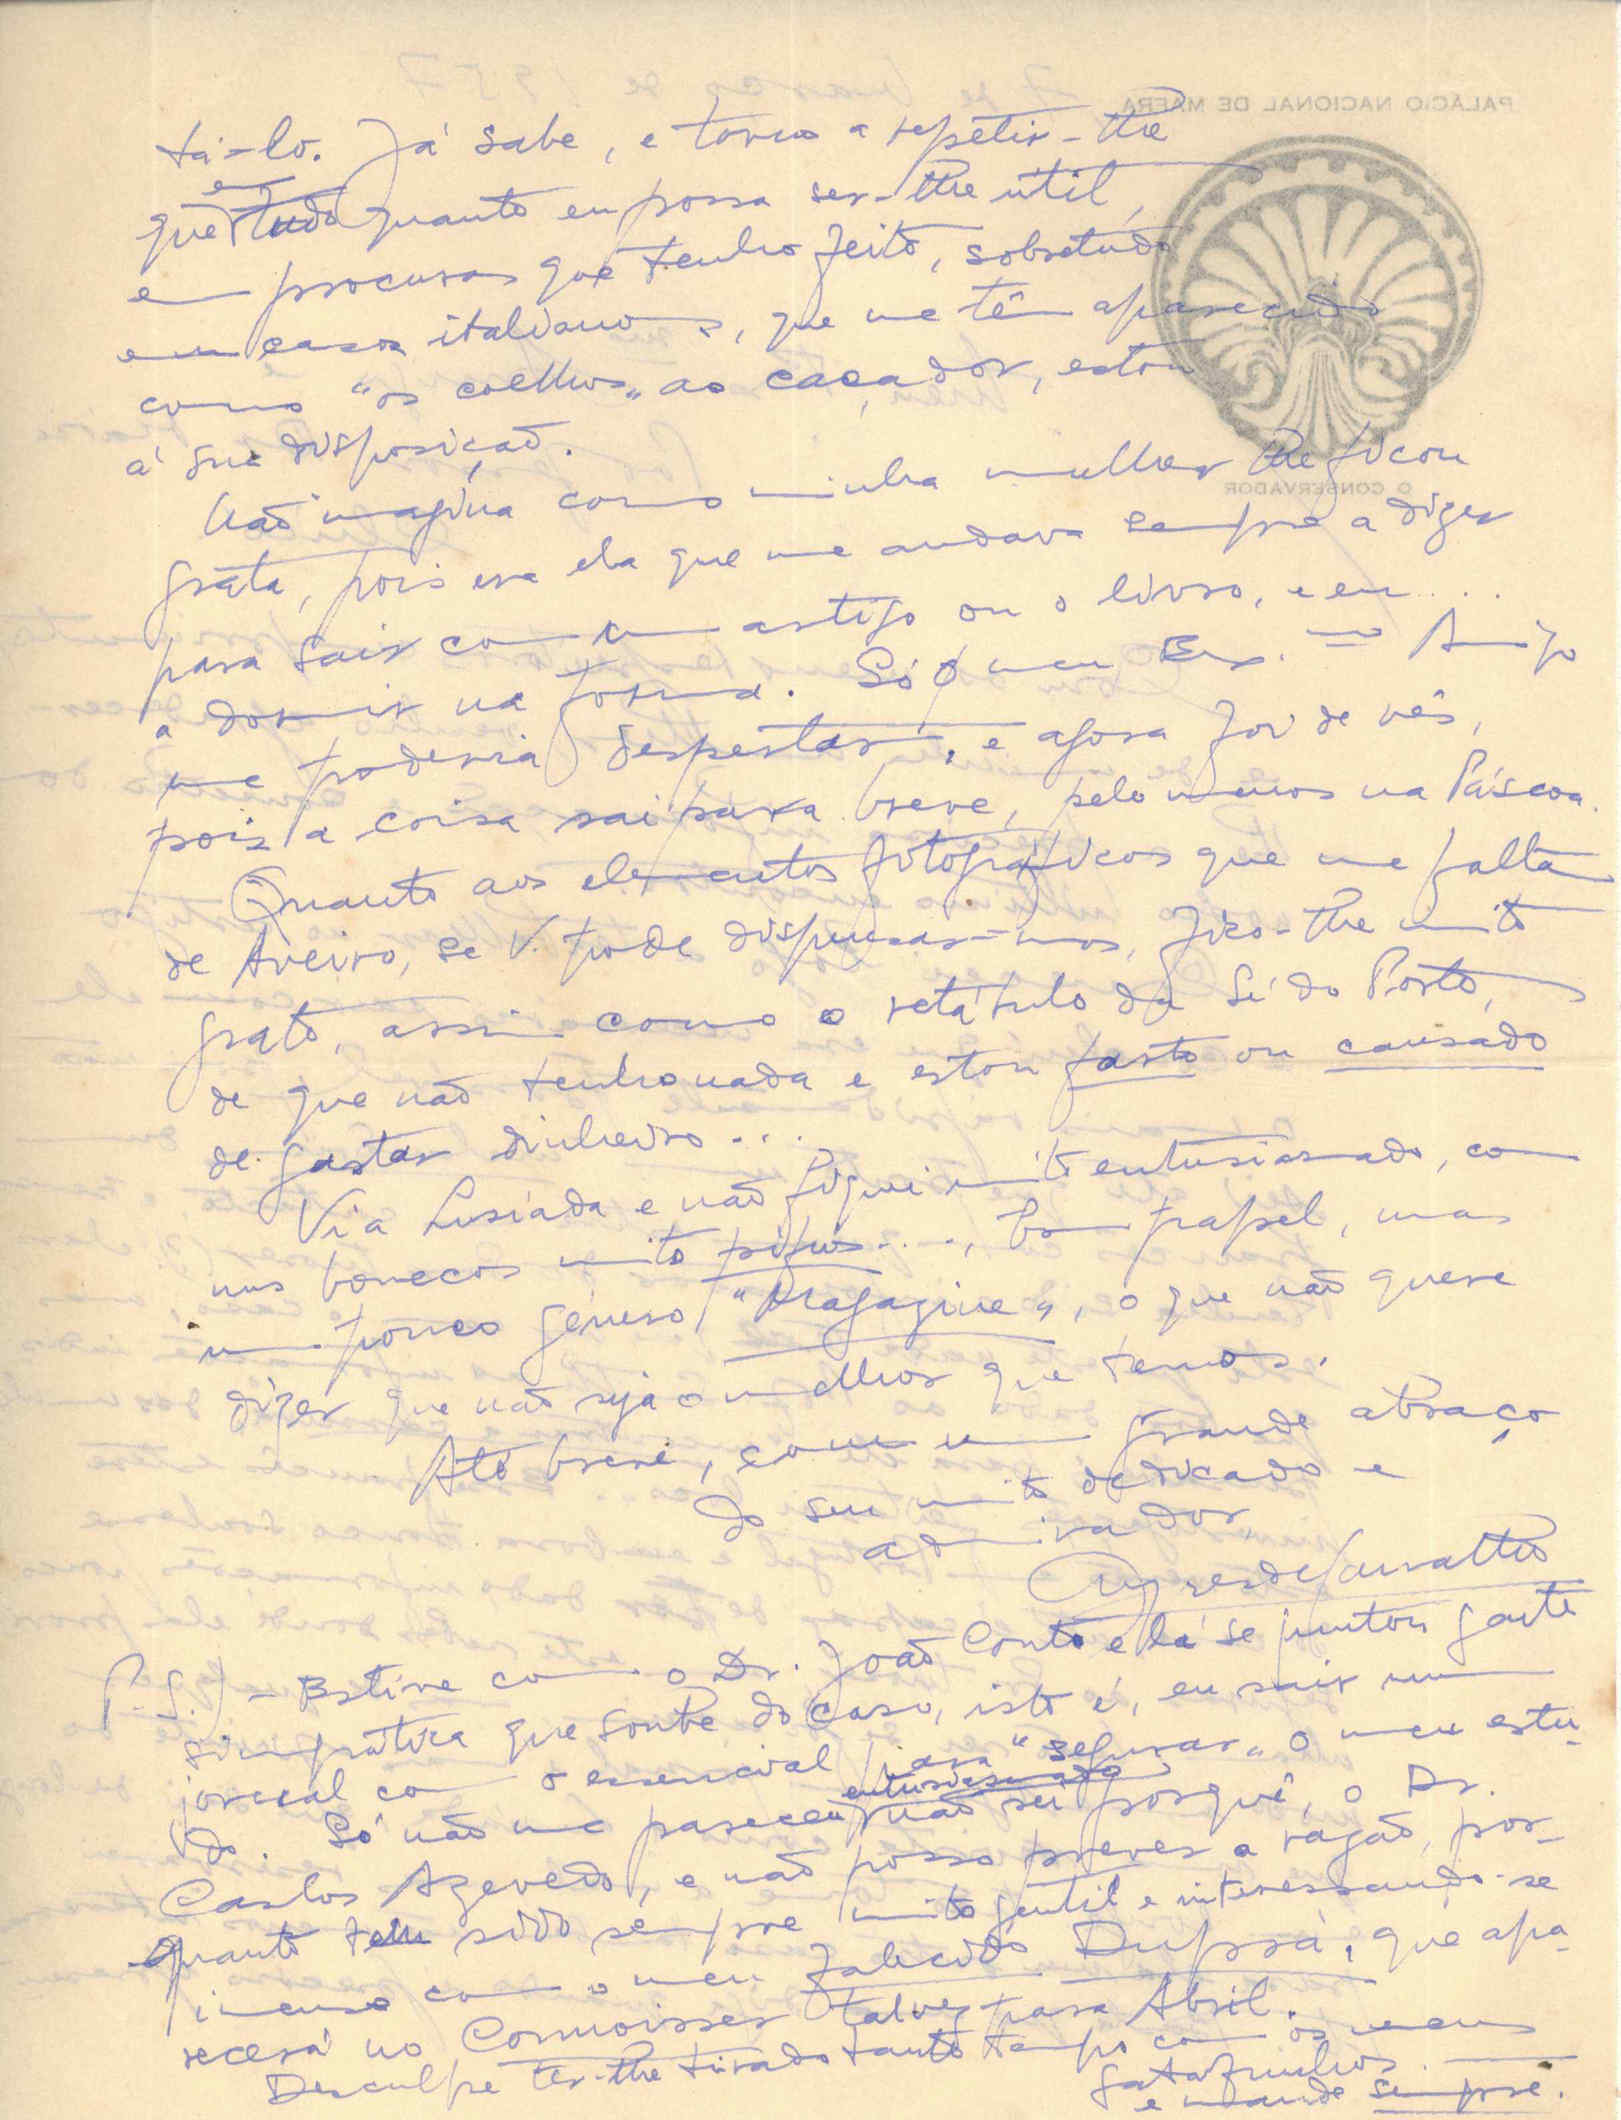 tá-lo. Já sabe, e torno a repetir-lhe
que em tudo quanto eu possa ser-lhe útil,
e procuras que tenho feito, sobretudo
em casos italianos, que me têm aparecido
como "os coelhos" ao caçador, estou
á sua disposição.
Não imagina como minha mulher lhe ficou
grata, pois era ela que me andava sempre a dizer
para sair com um artigo ou o livro, e eu...
a dormir na forma. Só o meu Ex.mo Amigo
me poderia despertar, e agora foi de vês,
pois a coisa sai para breve, pelo menos na Páscoa.
Quanto aos elementos fotográficos que me faltam
de Aveiro, se V. pode dispensar-mos, fico-lhe mito
grato, assim como o retábulo da Sé do Porto,
de que não tenho nada e estou farto ou cansado
de gastar dinheiro...
Vi a Lusíada e não fiquei mito entusiasmado, com
uns bonecos mito pífios..., bom papel, mas
um pouco género "Magazine", o que não quere
dizer que não seja o melhor que temos.
Até breve, com um grande abraço
do seu mito dedicado e
admirador,
Ayres de Carvalho
P.S.) - Estive com o Dr. João Couto e lá se juntou gente
simpática que soube do caso, isto é, eu sair num
jornal com o essencial para "segurar" o meu estu-
do. Só não me pareceu entusiasmado não sei porquê, o Dr.
Carlos Azevedo, e não posso prever a razão, por-
quanto tem sido sempre mito gentil e interessando-se
imenso com o meu falecido Duprà, que apa-
recerá no Connoisser talvez para Abril.
Desculpe ter-lhe tirado tanto tempo com os meus
gatafunhos
e mande sempre.
PALÁCIO NACIONAL DE MAFRA
O CONSERVADOR
7 de Março de 1957